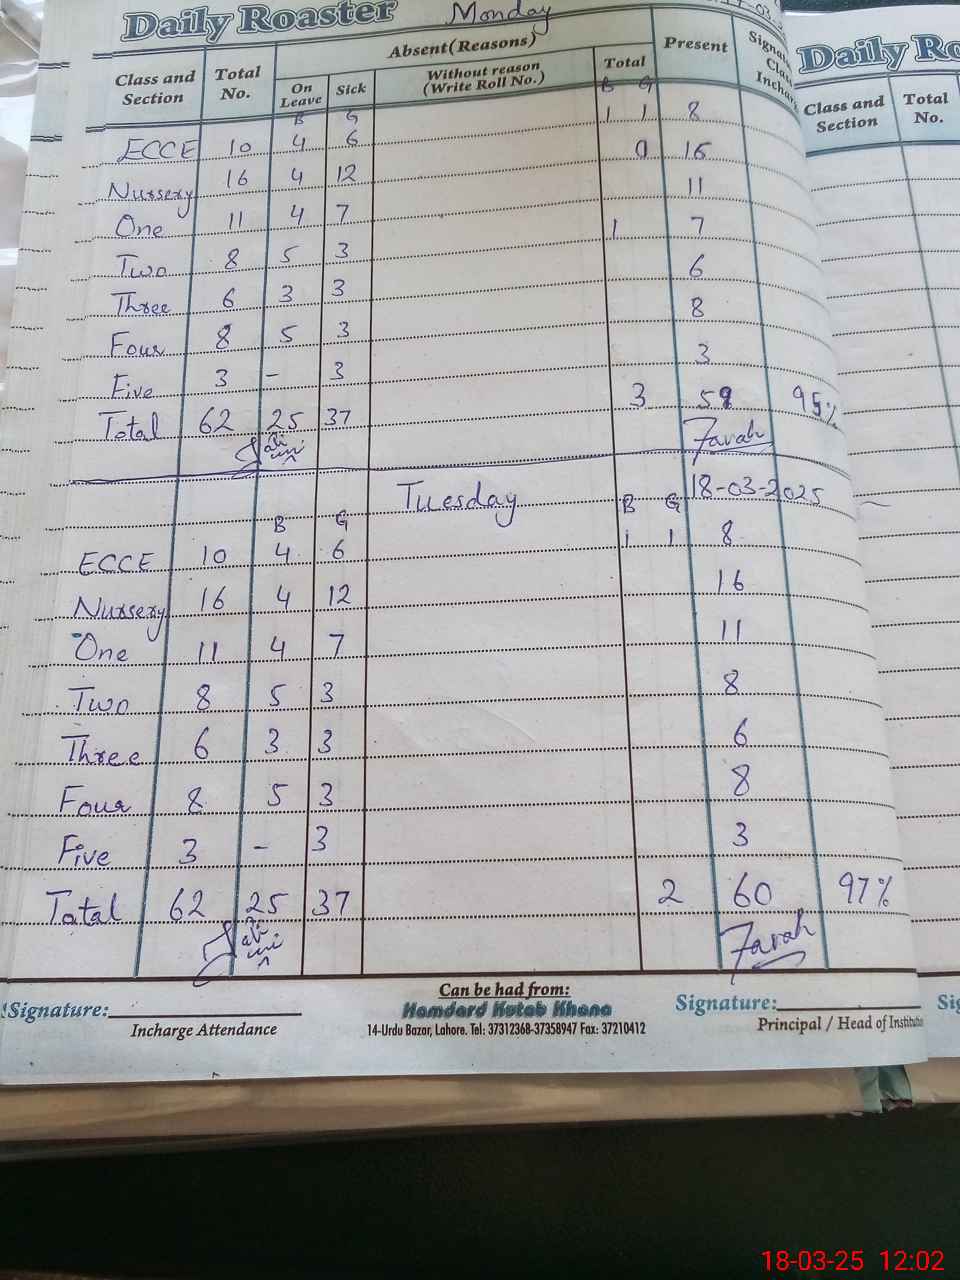 Daily Roaster Monday
Class and Section Total No. Absent(Reasons) Present
On Leave Sick Without reason (Write Roll No.) Total
B G B G
ECCE 10 4 6 1 1 8
Nursery 16 4 12 0 16
One 11 4 7 11
Two 8 5 3 1 7
Three 6 3 3 6
Four 8 5 3 8
Five 3 - 3 3
Total 62 25 37 3 59 95%
Farah
Tuesday 18-03-2025
B G B G
ECCE 10 4 6 1 1 8
Nursery 16 4 12 16
One 11 4 7 11
Two 8 5 3 8
Three 6 3 3 6
Four 8 5 3 8
Five 3 - 3 3
Total 62 25 37 2 60 97%
Farah
Signature: Can be had from: Signature:
Incharge Attendance Hamdard Kutab Khana Principal / Head of Institute
14-Urdu Bazar, Lahore. Tel: 37312368-37358947 Fax: 37210412
Daily Ro
Class and Section Total No.
Sig
18-03-25 12:02